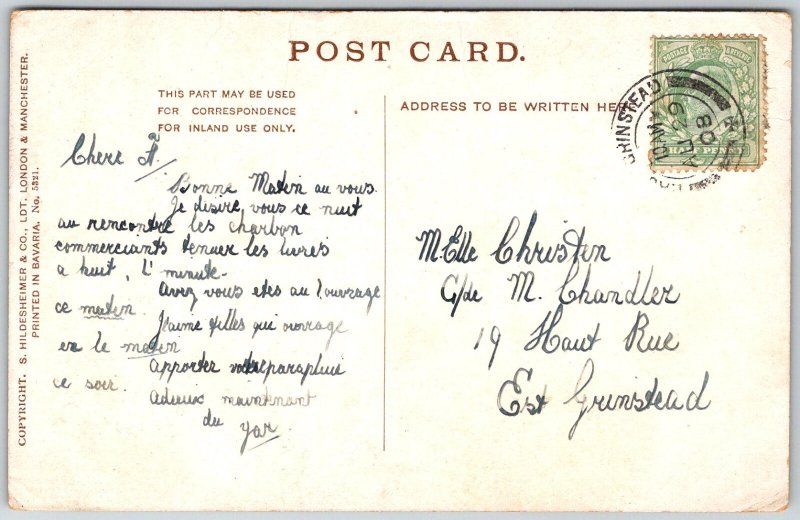 POST CARD.
THIS PART MAY BE USED
FOR CORRESPONDENCE
FOR INLAND USE ONLY.
Chere F.
Bonne Maten au vous.
Je disire, vous ce nuit
au rencontre les charbon
commerciants tenuer les livres
a huit, l' minute-
Avez vous etes au l'ouvrage
ce maten.
J'aime filles qui ouvrage
en le maten
Apporter votre parapluie
ce soir.
Adieux maintenant
du
Yar.
ADDRESS TO BE WRITTEN HERE
POSTAGE REVENUE
HALF PENNY
GRINSTEAD
10 AM
80
M.Elle Christen
C/de M. Chandler
19 Haut Rue
Est Grinstead
COPYRIGHT. S. HILDESHEIMER & CO., LDT. LONDON & MANCHESTER.
PRINTED IN BAVARIA. No. 5321.